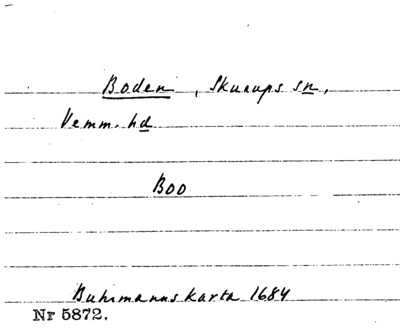 Boden, Skurups sn,
Vemm. hd
Boo
Buhrmanns karta 1684
Nr 5872.